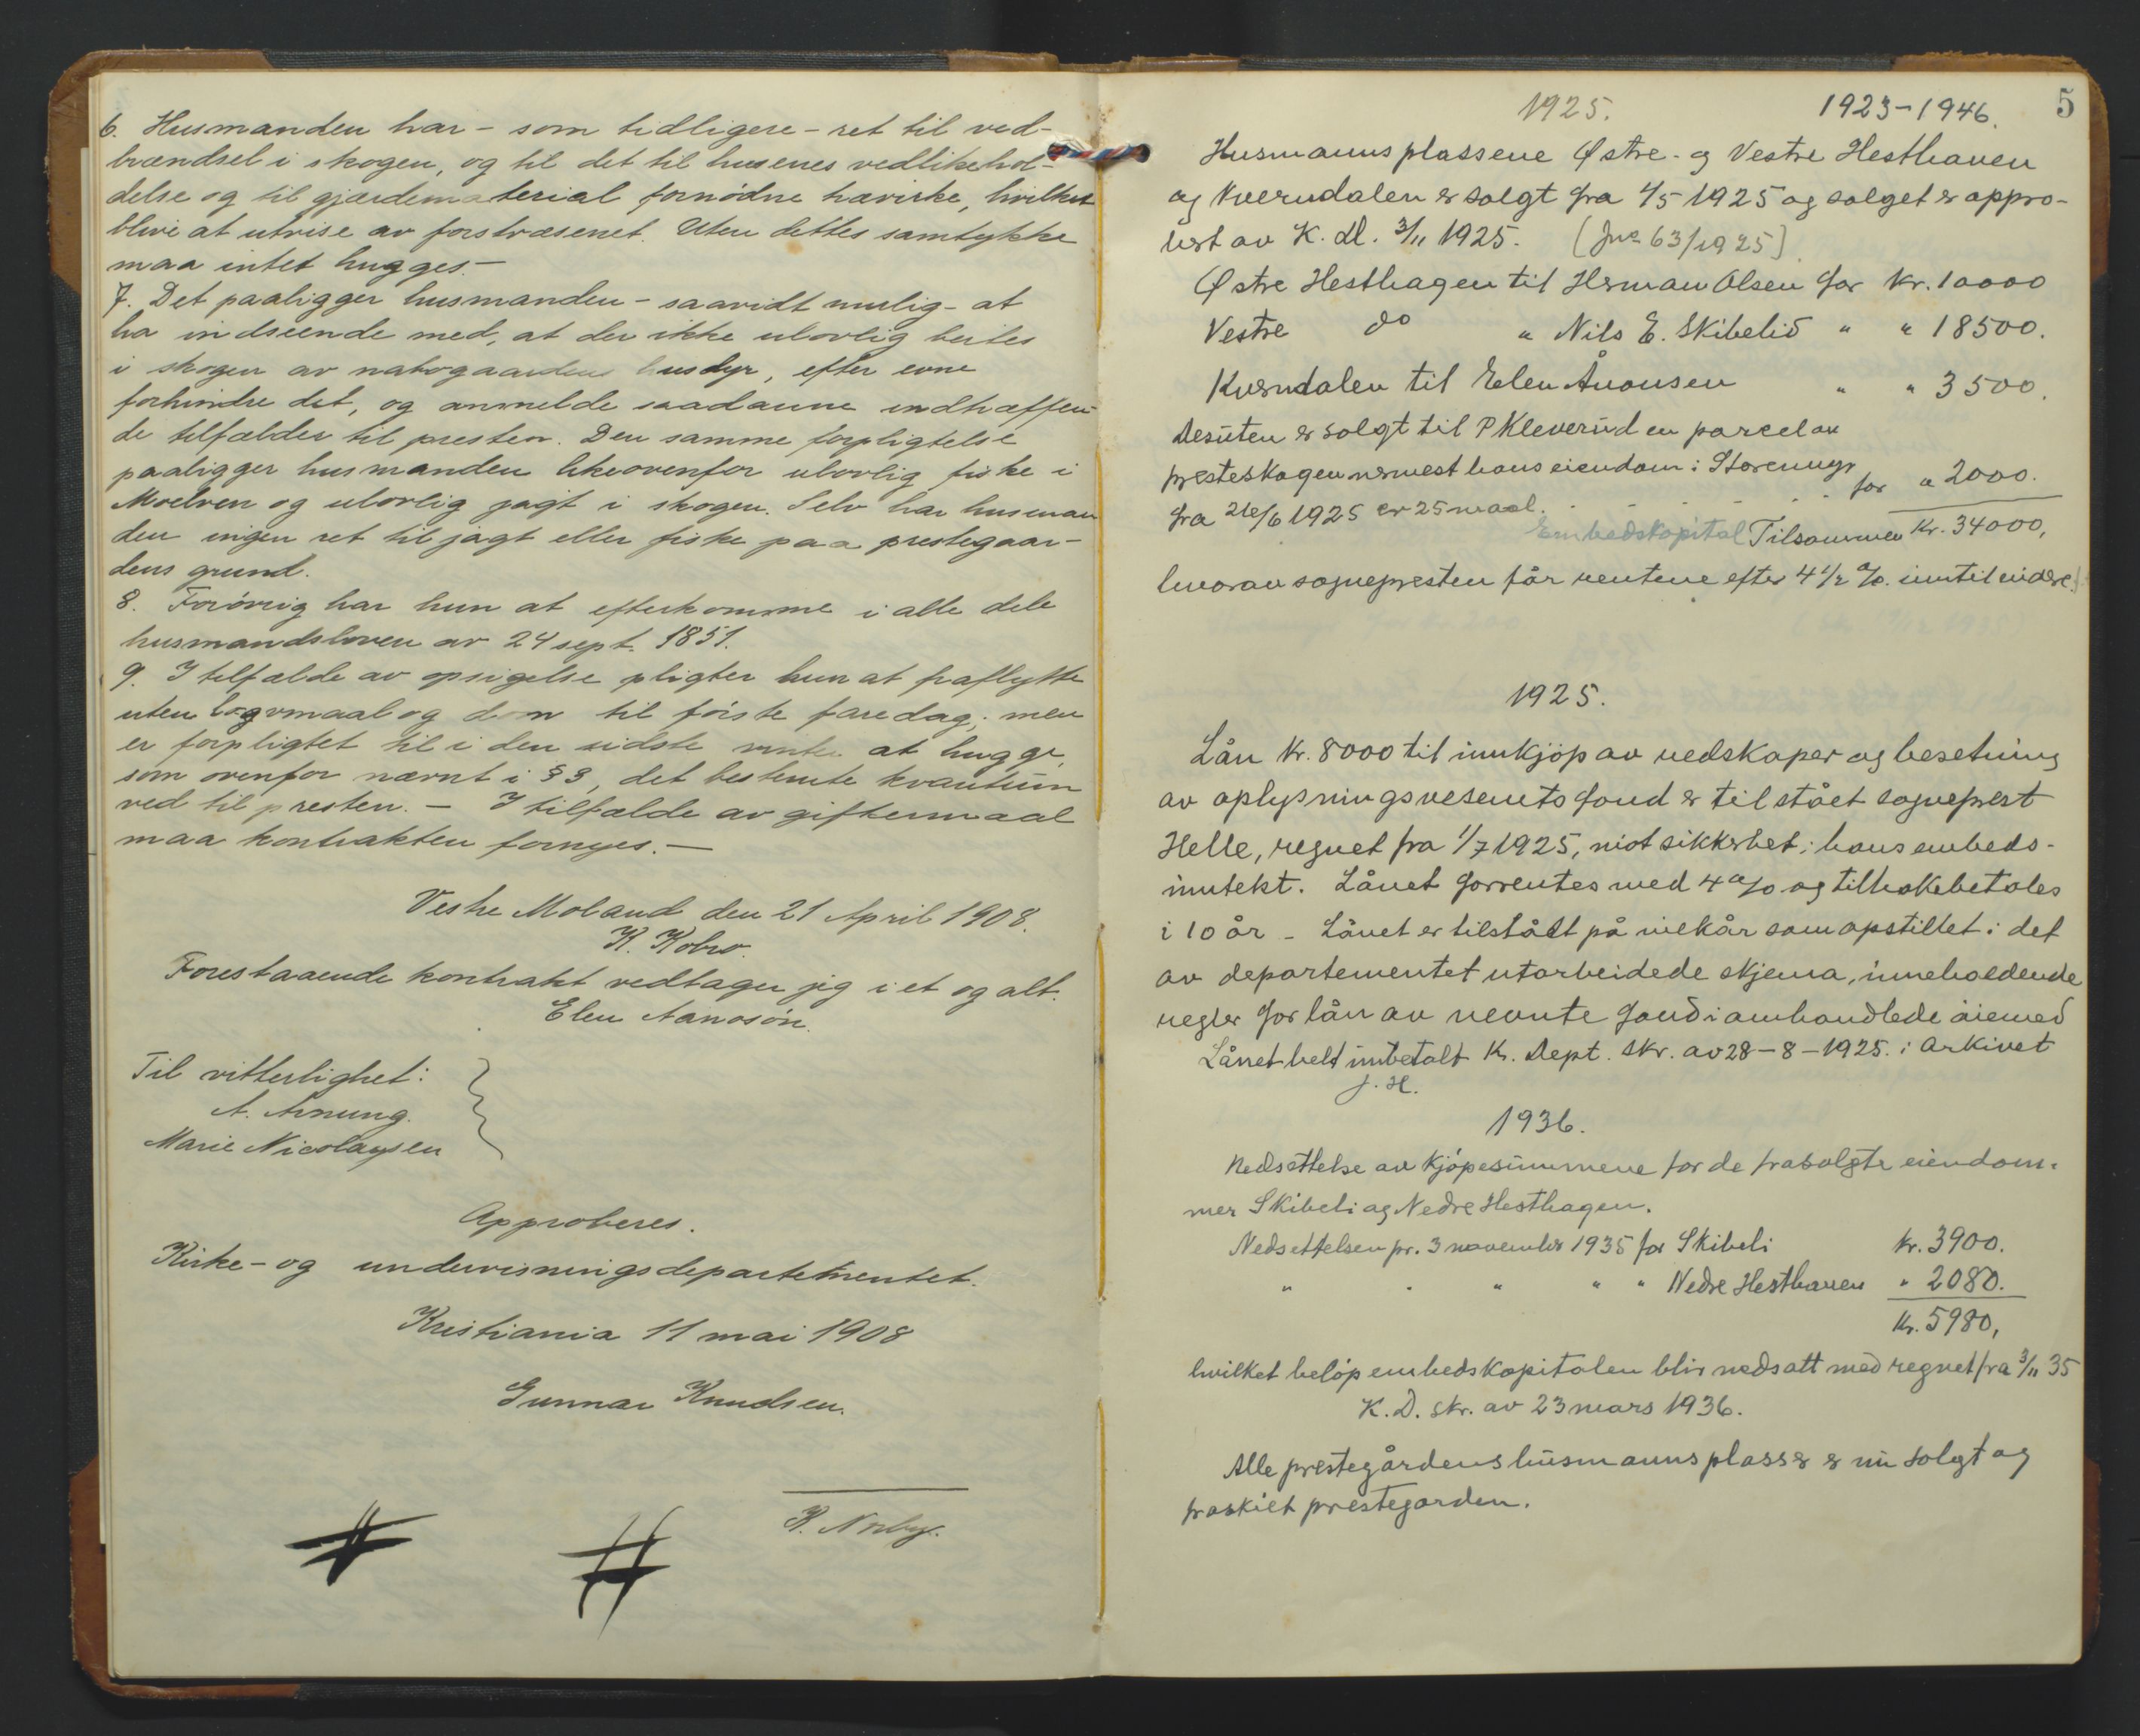 6. Husmanden har - som tidligere - ret til ved-
brændsel i skogen, og til det til husenes vedlikehol-
delse og til gjærdematerial fornødne trævirke, hvilket
blive at utvise av forstvæsenet. Uten dettes samtykke
maa intet hugges. -
7. Det paaligger husmanden - saavidt mulig - at
ha indseende med, at der ikke ulovlig beites
i skogen av nabogaardens husdyr, efter evne
forhindre det, og anmelde saadanne indtræffen-
de tilfælder til presten. Den samme forpligtelse
paaligger husmanden likeovenfor ulovlig fiske i
Moelven og ulovlig jagt i skogen. Selv har husman
den ingen ret til jagt eller fiske paa prestegaar-
dens grund.
8. Forøvrig har hun at efterkomme i alle dele
husmandsloven av 24 sept. 1851.
9. I tilfælde av opsigelse pligter hun at fraflytte
uten logvmaal og dom til første faredag; men
er forpligtet til i den sidste vinter at hugge,
som ovenfor nævnt i § 3, det bestemte kvantum
ved til presten. - I tilfælde av giftermaal
maa kontrakten fornyes. -
Vestre Moland den 21 April 1908.
K. Kobro.
Forestaaende kontrakt vedtager jeg i et og alt.
Elen Aanosøn.
Til vitterlighet:
A. Arnung.
Marie Nicolaysen
Approberes.
Kirke- og undervisningsdepartementet.
Kristiania 11 mai 1908
Gunnar Knudsen.
K.
1925. 1923-1946. 5
Husmannsplassene Østre- og Vestre Hesthaven
og Kverndalen er solgt fra 4/5 1925 og salget er appro-
bert av K. D. 3/11 1925. (Jno 63/1925)
Østre Hesthagen til Herman Olsen for Kr. 10000
Vestre do " Nils E. Skibelid " " 18500.
Kverndalen til Elen Ånonsen " " 3500.
Desuten er solgt til P Kleverud en parcel av
presteskogen nærmest hans eiendom i Storemyr
for " 2000.
fra 26/6 1925 er 25 maal.
Embedskapital Tilsammen Kr. 34000,
hvorav sognepresten får rentene efter 4 1/2 %. inntil videre.
1925.
Lån Kr. 8000 til innkjøp av redskaper og besetning
av oplysningsvesenets fond er tilstået sogneprest
Helle, regnet fra 1/7 1925, mot sikkerhet i hans embeds-
inntekt. Lånet forrentes med 4 % og tilbakebetales
i 10 år - Lånet er tilstått på vilkår som opstillet i det
av departementet utarbeidede skjema, inneholdende
regler for lån av nevnte fond i omhandlede øiemed
Lånet helt innbetalt K. Dept. skr. av 28-8-1925. i arkivet
J. H.
1936.
Nedsettelse av kjøpesummene for de frasolgte eiendom-
mer Skibeli og Nedre Hesthagen.
Nedsettelsen pr. 3 november 1935 for Skibeli Kr. 3900.
" " " " " Nedre Hesthaven " 2080.
Kr. 5980,
hvilket beløp embedskapitalen blir nedsatt med regnet fra 3/11 35
K. D. skr. av 23 mars 1936.
Alle prestegårdens husmannsplasser er nu solgt og
fraskilt prestegarden.